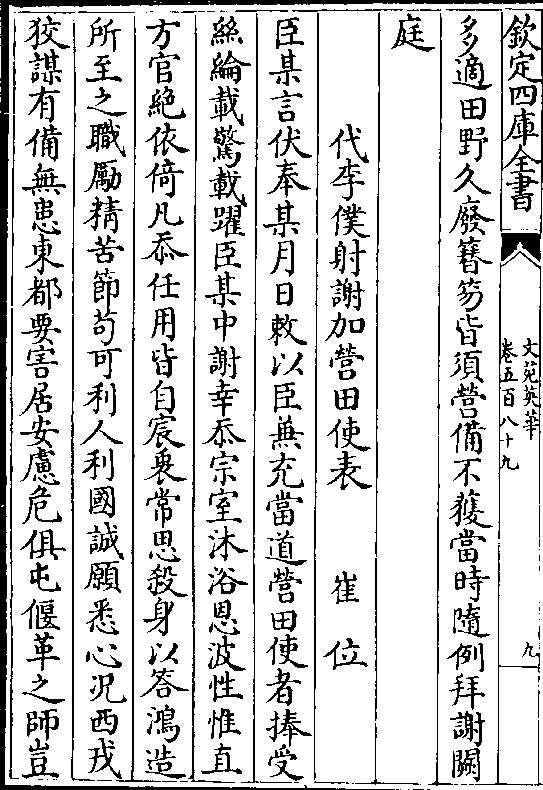 欽定四庫全書
文苑英華
卷五百八十九
九
多適田野久廢簪笏皆須營備不獲當時隨例拜謝闕
庭
代李僕射謝加營田使表 崔位
臣某言伏奉某月日敕以臣兼充當道營田使者捧受
絲綸載驚載躍臣某中謝幸忝宗室沐浴恩波性惟直
方官絶依倚凡忝任用皆自宸衷常思殺身以答鴻造
所至之職勵精苦節苟可利人利國誠願悉心况西戎
狡謀有備無患東都要害居安慮危俱屯偃革之師豈